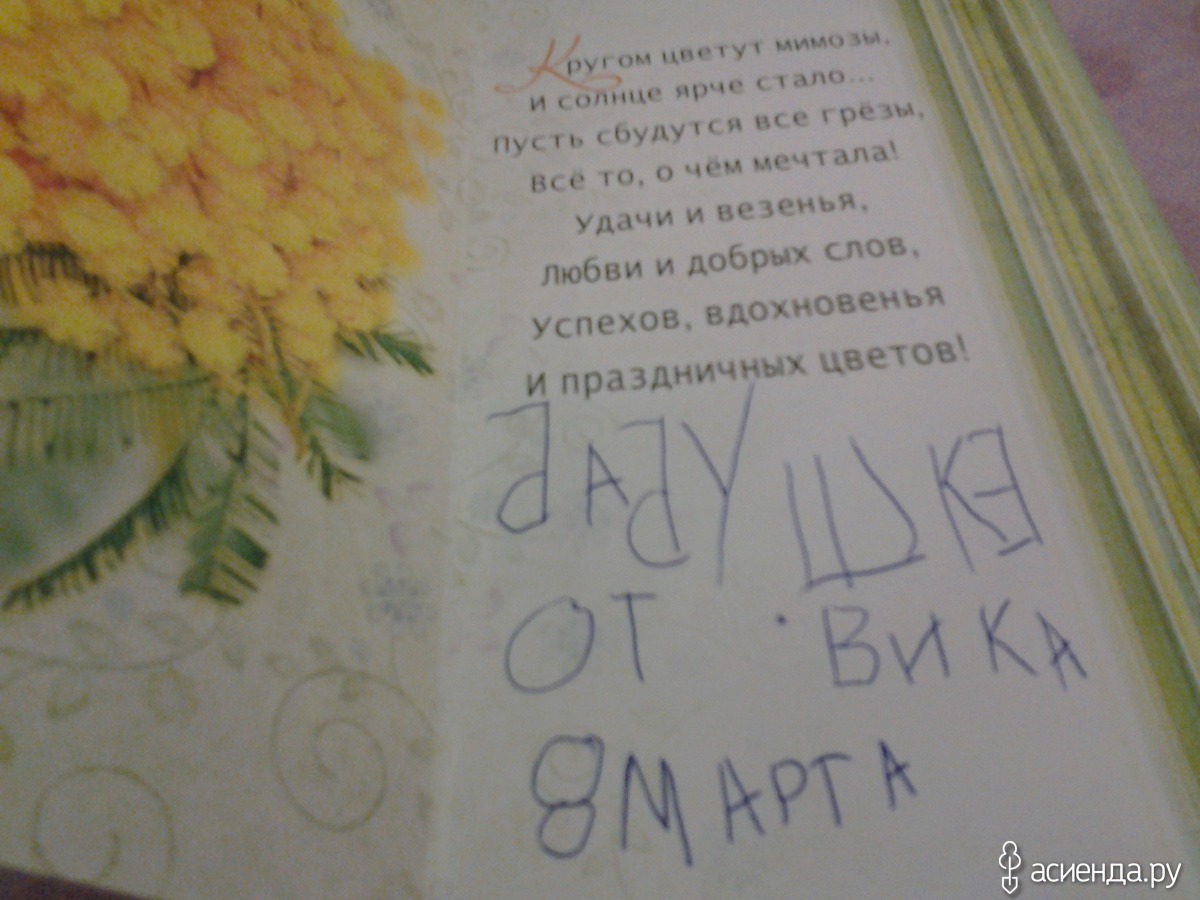 Кругом цветут мимозы,
и солнце ярче стало...
Пусть сбудутся все грёзы,
Всё то, о чём мечтала!
Удачи и везенья,
Любви и добрых слов,
Успехов, вдохновенья
И праздничных цветов!
БАБУШКЕ
ОТ ВИКА
8 МАРТА
асиенда.ру